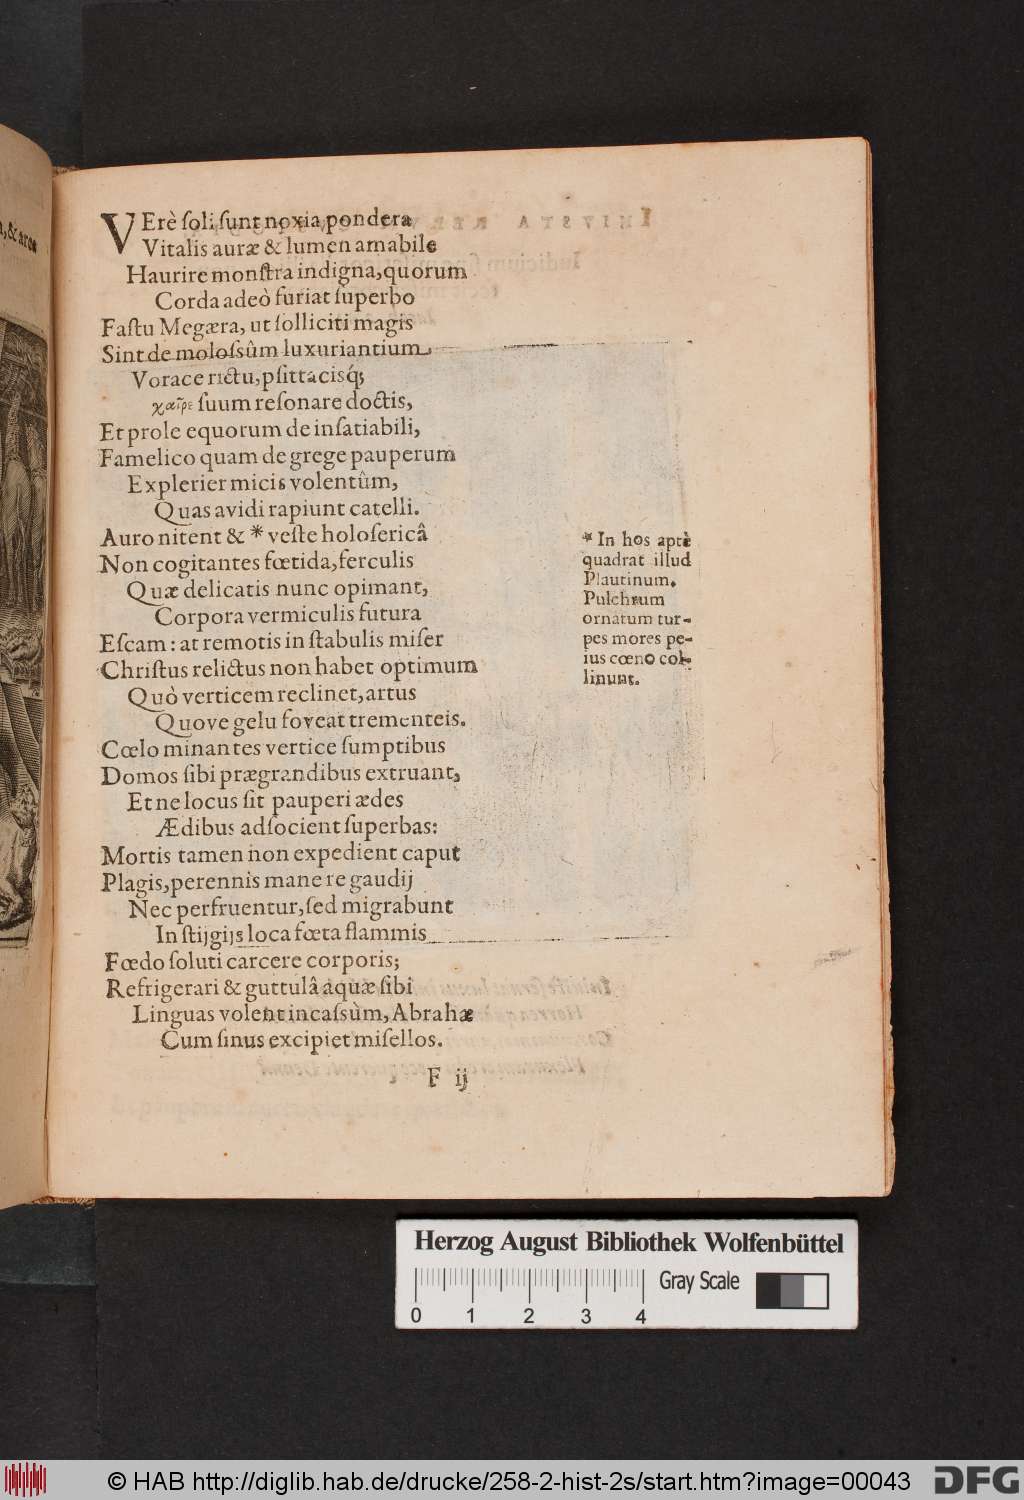 n, & aroe
VErè ſoli ſunt noxia pondera
Vitalis auræ & lumen amabile
Haurire monſtra indigna, quorum
Corda adeò furiat ſuperbo
Faſtu Megæra, ut ſolliciti magis
Sint de moloſsûm luxuriantium
Vorace rictu, pſittacisq́;
χαῖρε ſuum reſonare doctis,
Et prole equorum de inſatiabili,
Famelico quam de grege pauperum
Explerier micis volentûm,
Quas avidi rapiunt catelli.
Auro nitent & * veſte holoſericâ
Non cogitantes fœtida, ferculis
Quæ delicatis nunc opimant,
Corpora vermiculis futura
Eſcam: at remotis in ſtabulis miſer
Chriſtus relictus non habet optimum
Quò verticem reclinet, artus
Quove gelu foveat trementeis.
Cœlo minantes vertice ſumptibus
Domos ſibi prægrandibus extruant,
Et ne locus ſit pauperi ædes
Ædibus adſocient ſuperbas:
Mortis tamen non expedient caput
Plagis, perennis mane re gaudij
Nec perfruentur, ſed migrabunt
In ſtijgijs loca fœta flammis
Fœdo ſoluti carcere corporis;
Refrigerari & guttulâ aquæ ſibi
Linguas volent incaſsùm, Abrahæ
Cum ſinus excipiet miſellos.
F ij
* In hos aptè
quadrat illud
Plautinum.
Pulchrum
ornatum tur-
pes mores pe-
ius cœno col-
linunt.
Herzog August Bibliothek Wolfenbüttel
Gray Scale
0 1 2 3 4
© HAB http://diglib.hab.de/drucke/258-2-hist-2s/start.htm?image=00043
DFG